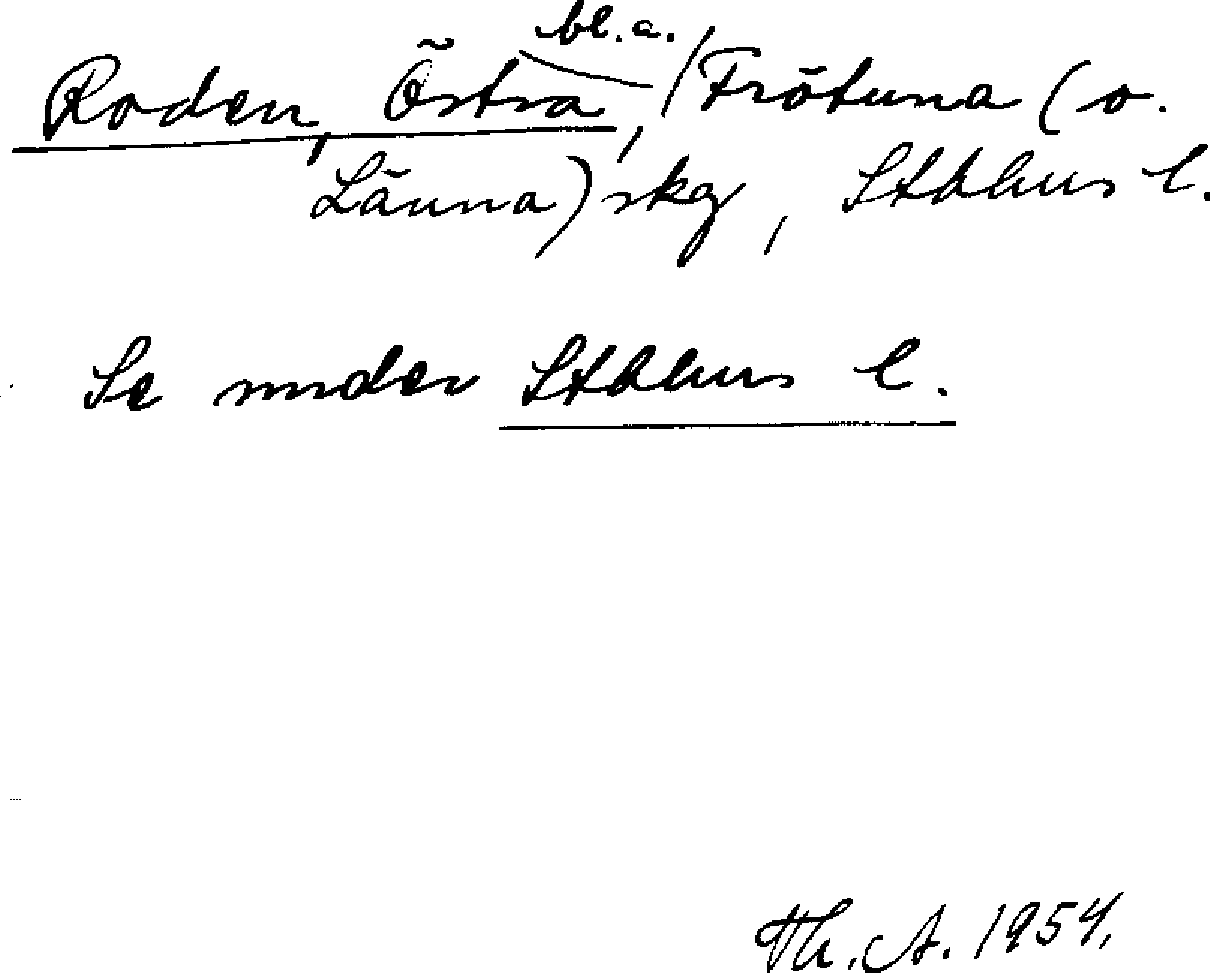 Roden, Östra, bl.a. Frötuna (o.
Länna) skg, Sthlms l.
Se under Sthlms l.
Th. A. 1954.